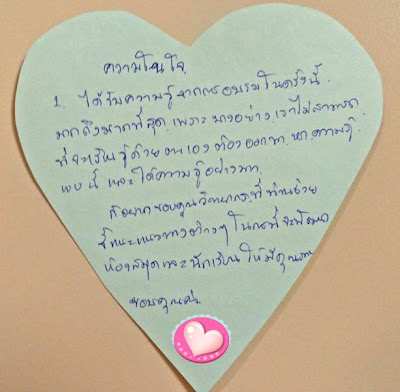 ความในใจ
1. ได้รับความรู้จากการอบรมในครั้งนี้
มากถึงมากที่สุด เพราะบางอย่างเราไม่สามารถ
ที่จะเรียนรู้ด้วยตนเองต้องออกมาหาความรู้
แบบนี้ และได้ความรู้อย่างมาก
ก็อยากขอบคุณวิทยากรที่ท่านช่วย
ชี้แนะแนวทางต่างๆ ในการที่จะพัฒนา
ห้องสมุดและนักเรียนให้มีคุณภาพ
ขอบคุณค่ะ